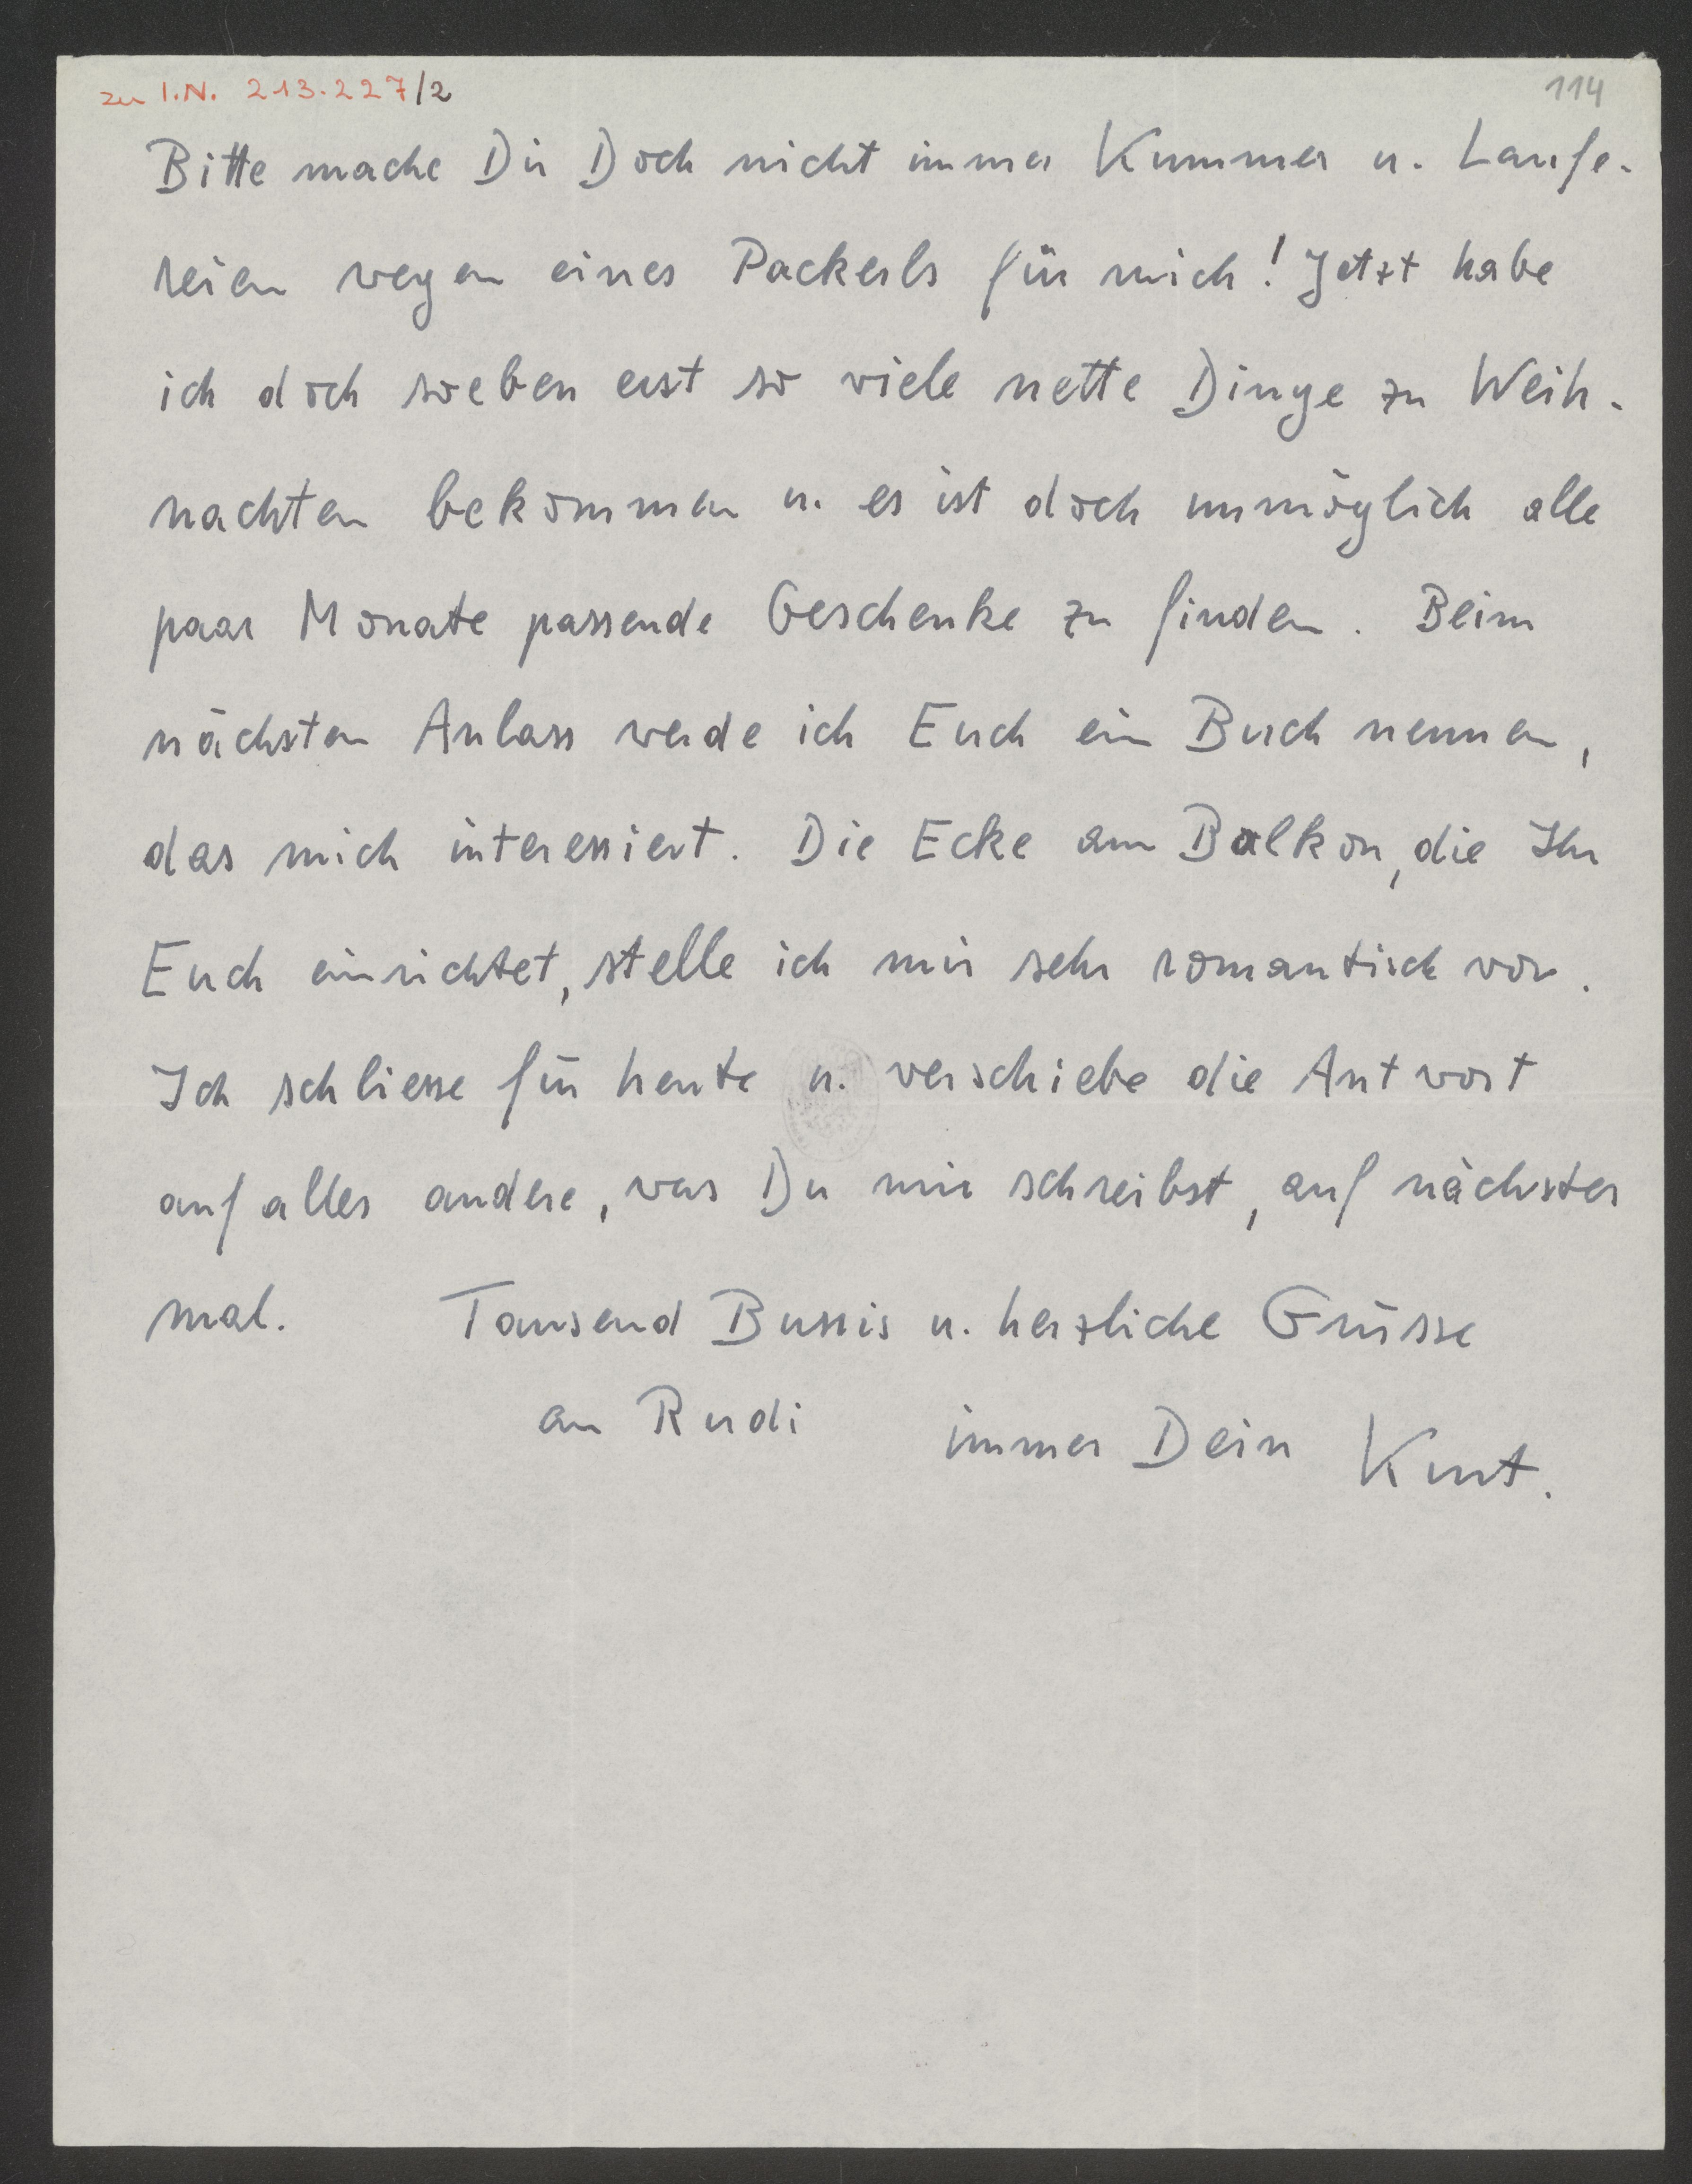 zu I.N. 213.227/2
114
Bitte mache Dir Doch nicht immer Kummer u. Laufe-
reien wegen eines Packerls für mich! Jetzt habe
ich doch soeben erst so viele nette Dinge zu Weih-
nachten bekommen u. es ist doch unmöglich alle
paar Monate passende Geschenke zu finden. Beim
nächsten Anlass werde ich Euch ein Buch nennen,
das mich interessiert. Die Ecke am Balkon, die Ihr
Euch einrichtet, stelle ich mir sehr romantisch vor.
Ich schliesse für heute u. verschiebe die Antwort
auf alles andere, was Du mir schreibst, auf nächstes
mal. Tausend Bussis u. herzliche Grüsse
an Rudi immer Dein Kurt.